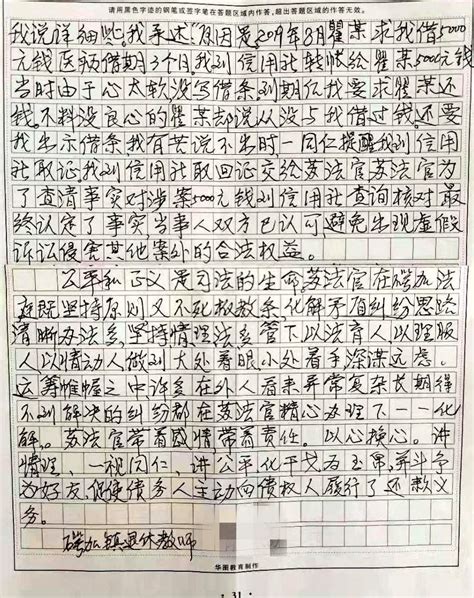 请用黑色字迹的钢笔或签字笔在答题区域内作答,超出答题区域的作答无效。
我说详细些。我亲述:原因是2019年8月瞿某求我借5000
元钱医病借期3个月。我到信用社转帐给瞿某5000元钱
当时由于心太软没写借条。到期后我要求瞿某还
钱。不料没良心的瞿某却说从没与我借过钱。还要
我出示借条我有苦说不出时一同仁提醒我到信用
社取证,我到信用社取回证交给苏法官苏法官为
了查清事实对涉案5000元钱到信用社查询核对最
终认定了事实当事人双方已认可,避免出现虚假
诉讼侵害其他案外的合法权益。
公平和正义是司法的生命。苏法官在碍加法
庭既坚持原则又不死板教条,化解矛盾纠纷思路
清晰办法多,坚持情理法多管下以法育人,以理服
人,以情动人做到大处着眼,小处着手深谋远虑。
这筹帷幄之中许多在外人看来异常复杂长期得
不到解决的纠纷都在苏法官精心办理下一一化
解。苏法官带着感情,带着责任。以心换心。讲
情理、一视同仁,讲公平化干戈为玉帛,并斗争
为好友,促使债务人主动向债权人履行了还款义
务。
碍加镇退休教师
华图教育制作
·31·